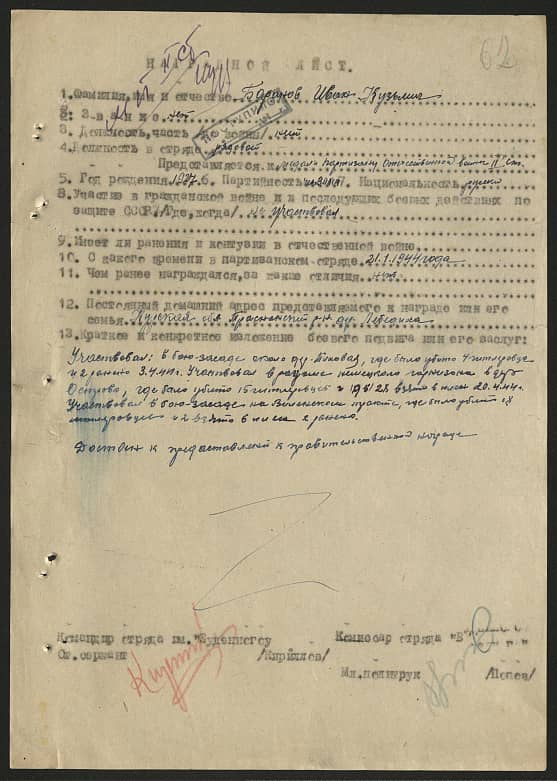 62
НАГРАДНОЙ ЛИСТ.
1. Фамилия, имя и отчество Баранов Иван Кузьмич
2. Звание нет
3. Должность, часть /до войны/ нет
4. Должность в отряде рядовой
Представляется к медали Партизану Отечественной войны II ст.
5. Год рождения 1927. 6. Партийность 7. Национальность русск
8. Участие в гражданской войне и в последующих боевых действиях по
защите СССР/где, когда/ не участвовал
9. Имеет ли ранения и контузии в отечественной войне
10. С какого времени в партизанском отряде 21.1.1944 года
11. Чем ранее награждался, за какие отличия нет
12. Постоянный домашний адрес представляемого к награде или его
семьи обл. р-н дер.
13. Краткое и конкретное изложение боевого подвига или его заслуг:
Участвовал: в бою-засаде около дер. где было убито
и 2 ранено 3.4.44 г. Участвовал в разгроме немецкого гарнизона в дер.
Острово, где было убито 15 гитлеровцев и взято в плен 20.4.44 г.
Участвовал в бою-засаде на тракте, где было убито
гитлеровцев и 2 взято в плен 2 ранено.
Достоин к представлению к правительственной награде
Командир отряда им. "Буденного"
Комиссар отряда "Б
Ст. сержант /Кириллов/
Мл. политрук /Попов/